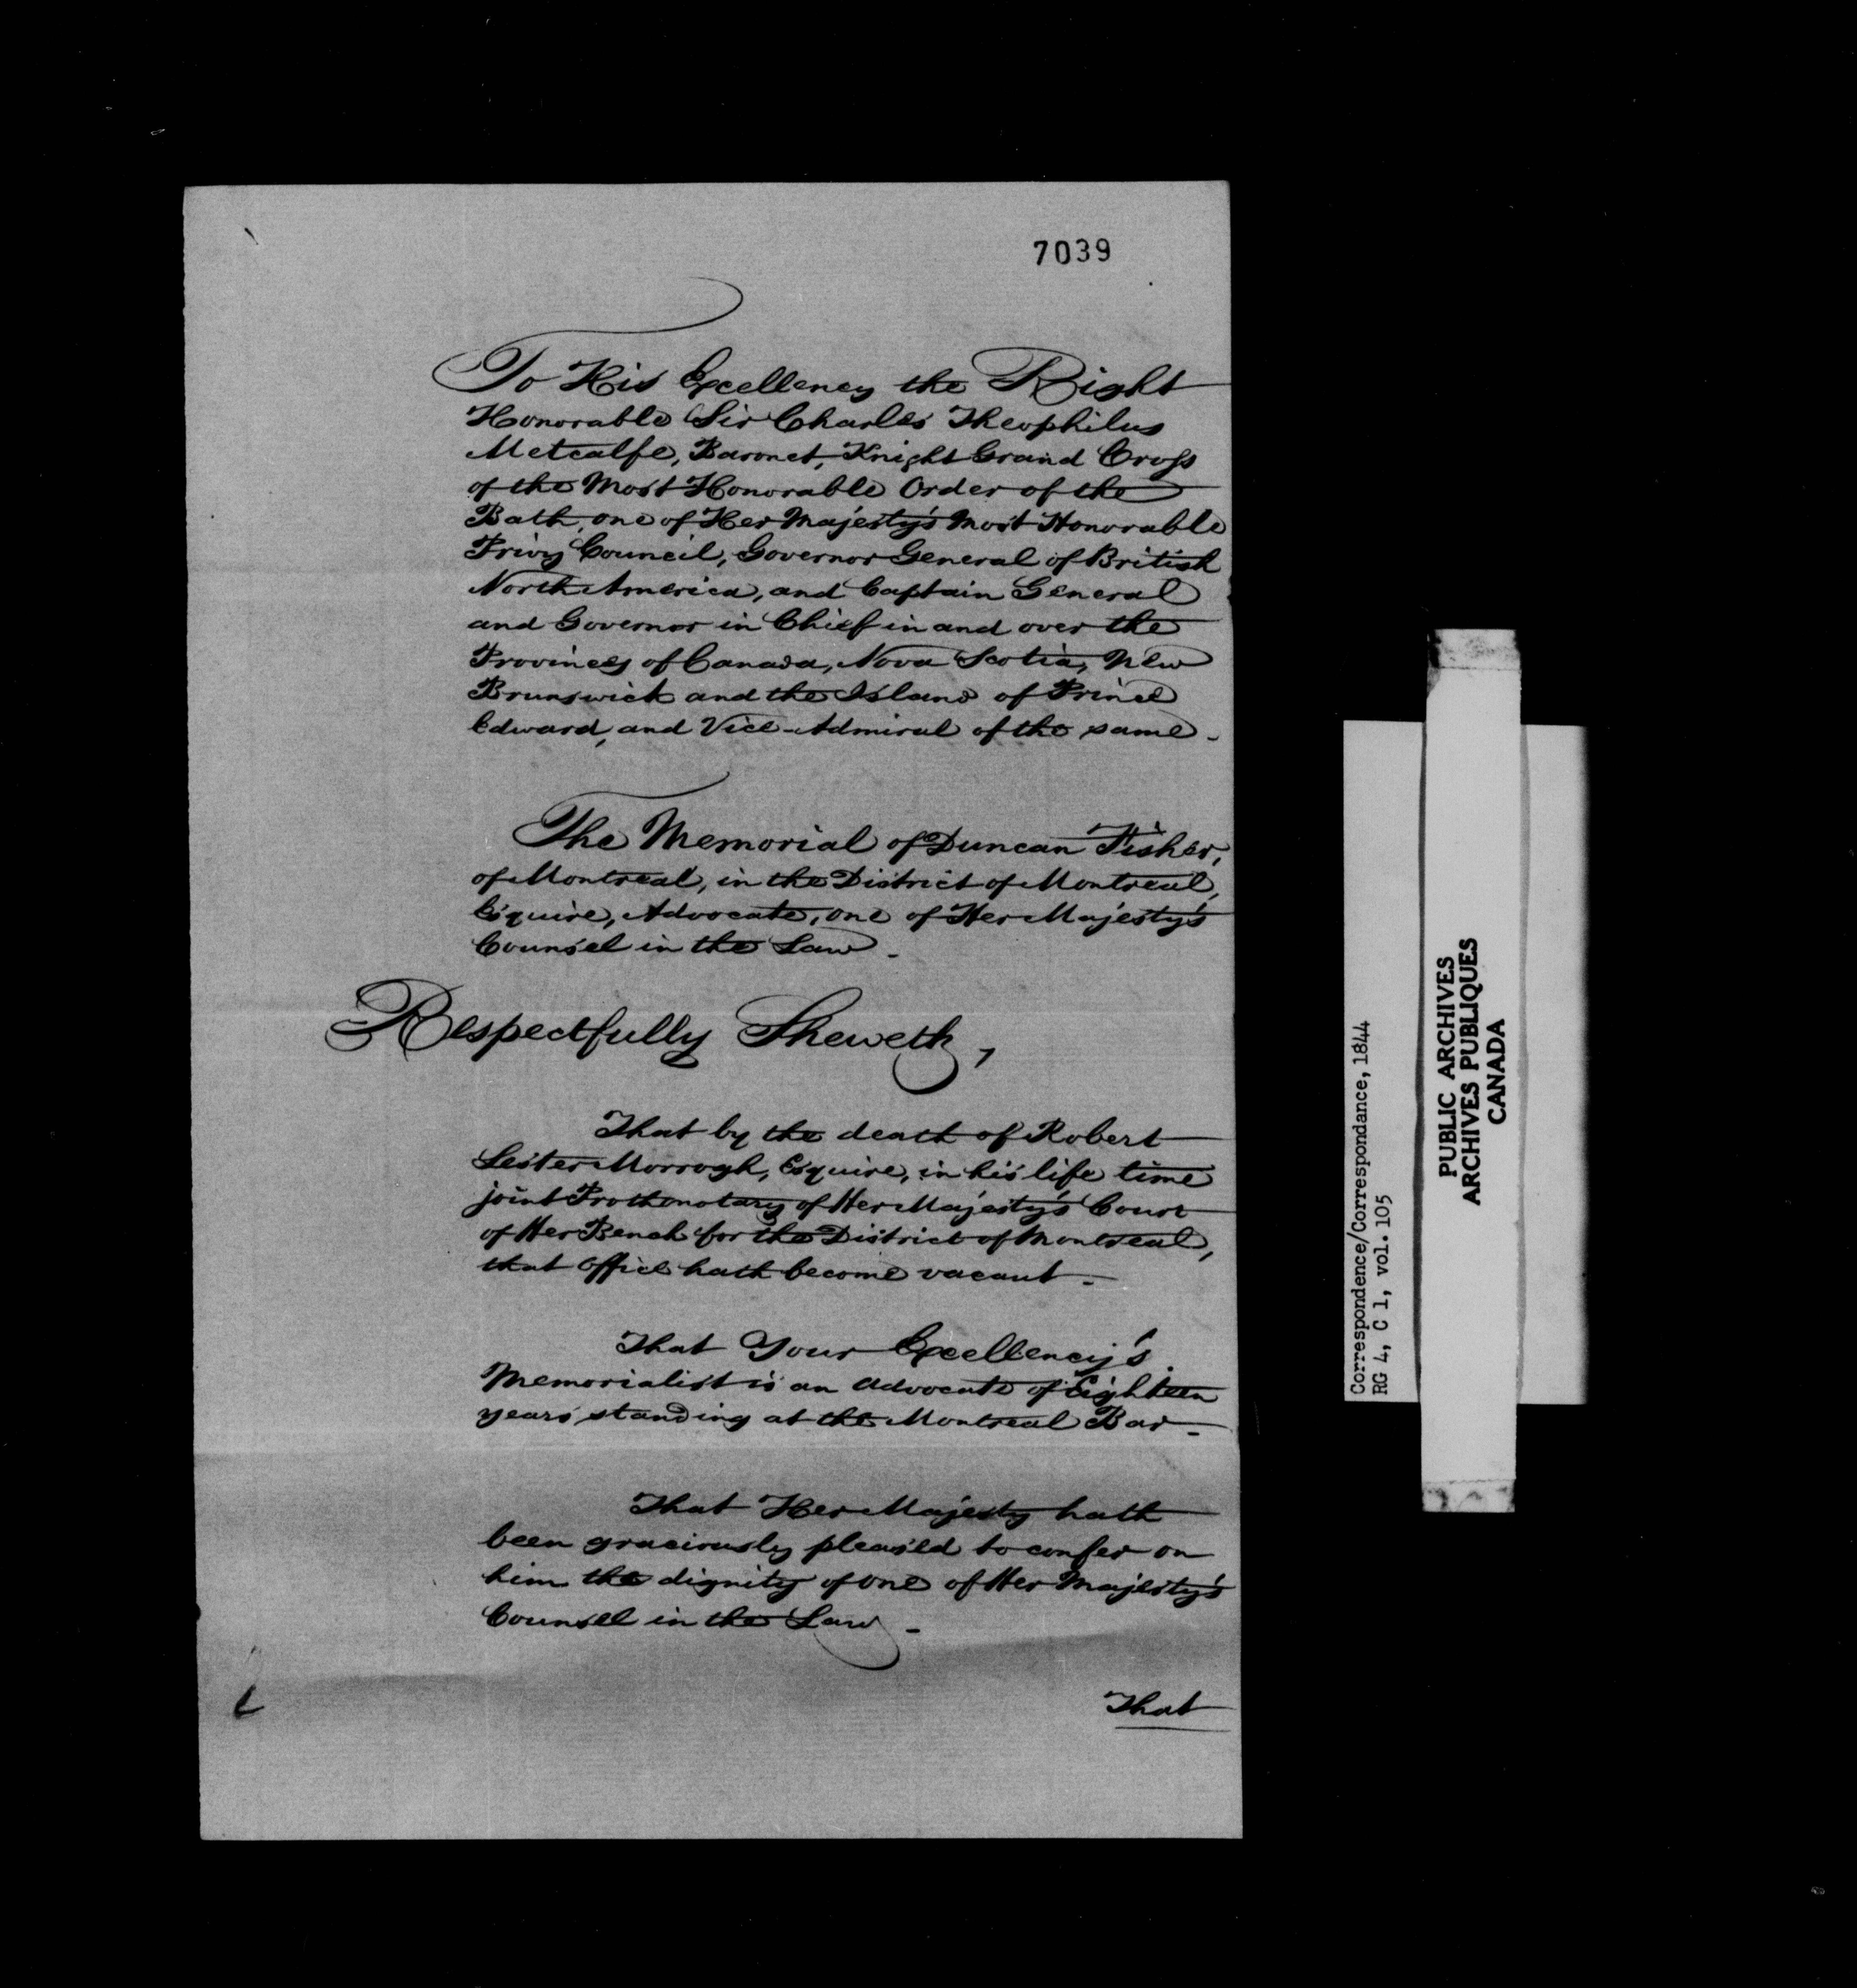 7039
To His Excellency the Right
Honorable Sir Charles Theophilus
Metcalfe, Baronet, Knight Grand Cross
of the Most Honorable Order of the
Bath, one of Her Majesty's Most Honorable
Privy Council, Governor General of British
North America, and Captain General
and Governor in Chief in and over the
Provinces of Canada, Nova Scotia, New
Brunswick and the Island of Prince
Edward, and Vice-Admiral of the same.
The Memorial of Duncan Fisher,
of Montreal, in the District of Montreal,
Esquire, Advocate, one of Her Majesty's
Counsel in the Law.
Respectfully Sheweth,
That by the death of Robert
Lester Morrogh, Esquire, in his life time
joint Prothonotary of Her Majesty's Court
of Her Bench for the District of Montreal,
that office hath become vacant.
That Your Excellency's
Memorialist is an advocate of Eighteen
years standing at the Montreal Bar.
That Her Majesty hath
been graciously pleased to confer on
him the dignity of one of Her Majesty's
Counsel in the Law.
That
Correspondence/Correspondance, 1844
RG 4, C 1, vol. 105
PUBLIC ARCHIVES
ARCHIVES PUBLIQUES
CANADA